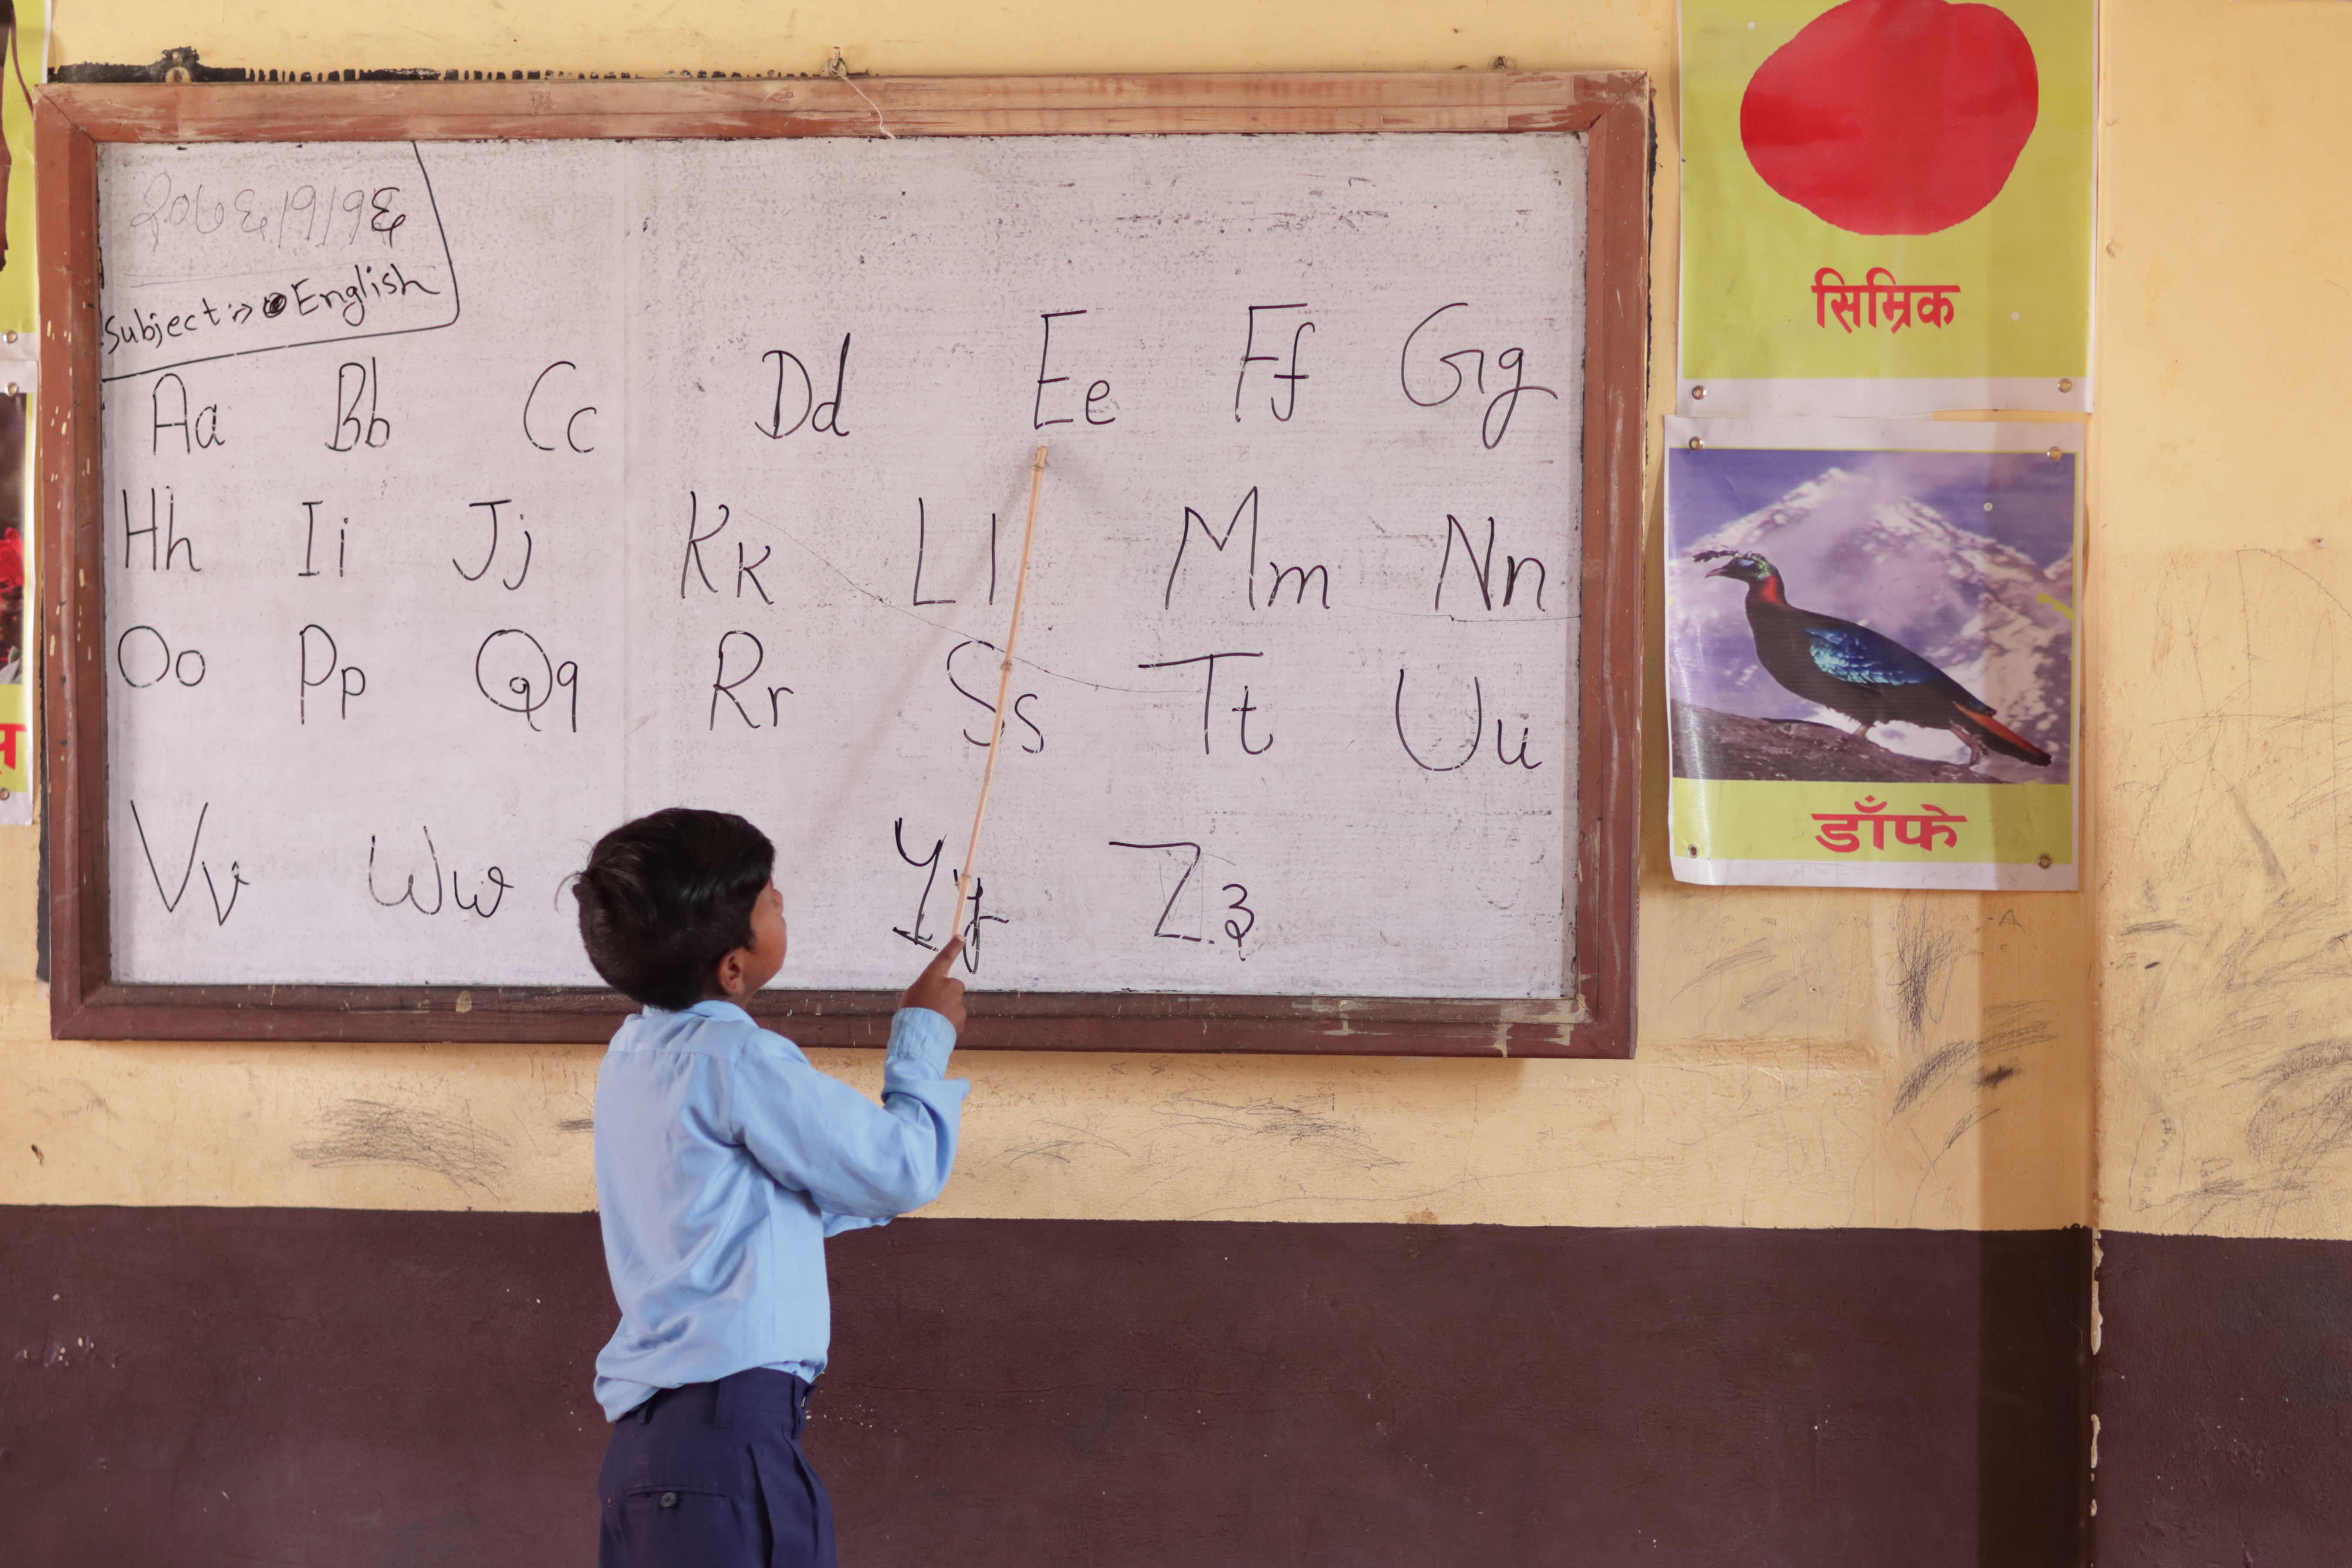 २०७६/१/१६
Subject :-> English
Aa Bb Cc Dd Ee Ff Gg
Hh Ii Jj Kk Ll Mm Nn
Oo Pp Qq Rr Ss Tt Uu
Vv Ww Yy Zz
सिम्रिक
डाँफे